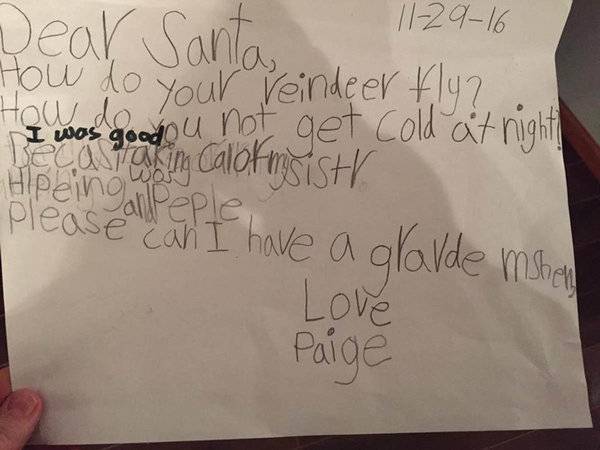 11-29-16
Dear Santa,
How do your reindeer fly?
How do you not get cold at night?
I was good
Becas I was taking cal of my sistr
Hlpeing and Peple
Please can I have a grarde mshen
Love
Paige